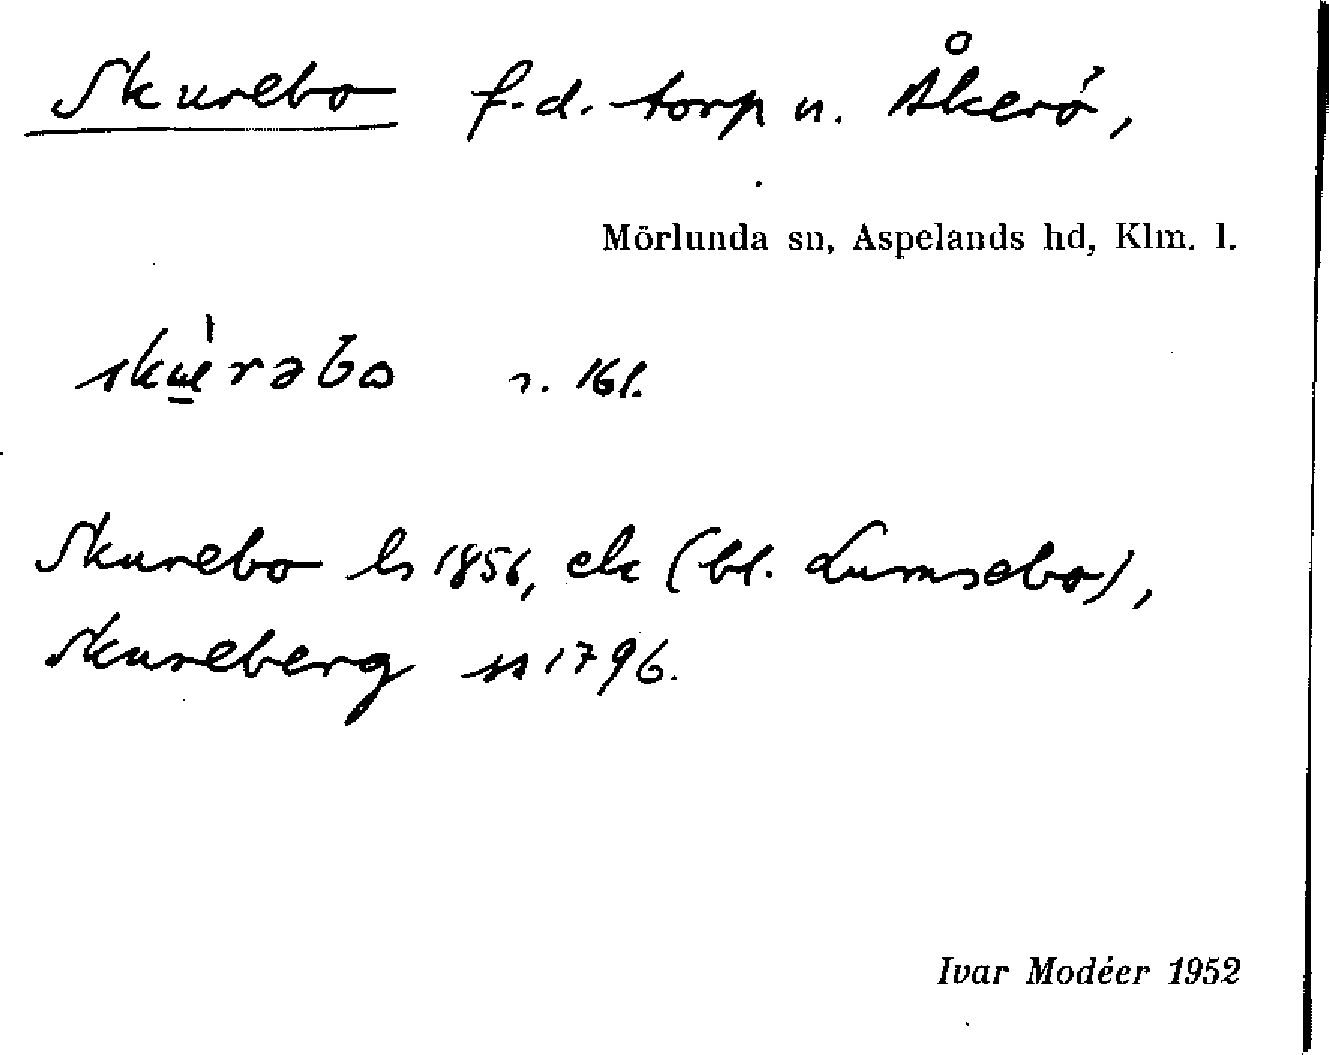 Skurebo f.d. torp u. Åkerö,
Mörlunda sn, Aspelands hd, Klm. l.
skɯ̀rəbo s. 161.
Skurebo ls 1856, ek (bl. Lumsebo),
Skureberg ss 1796.
Ivar Modéer 1952